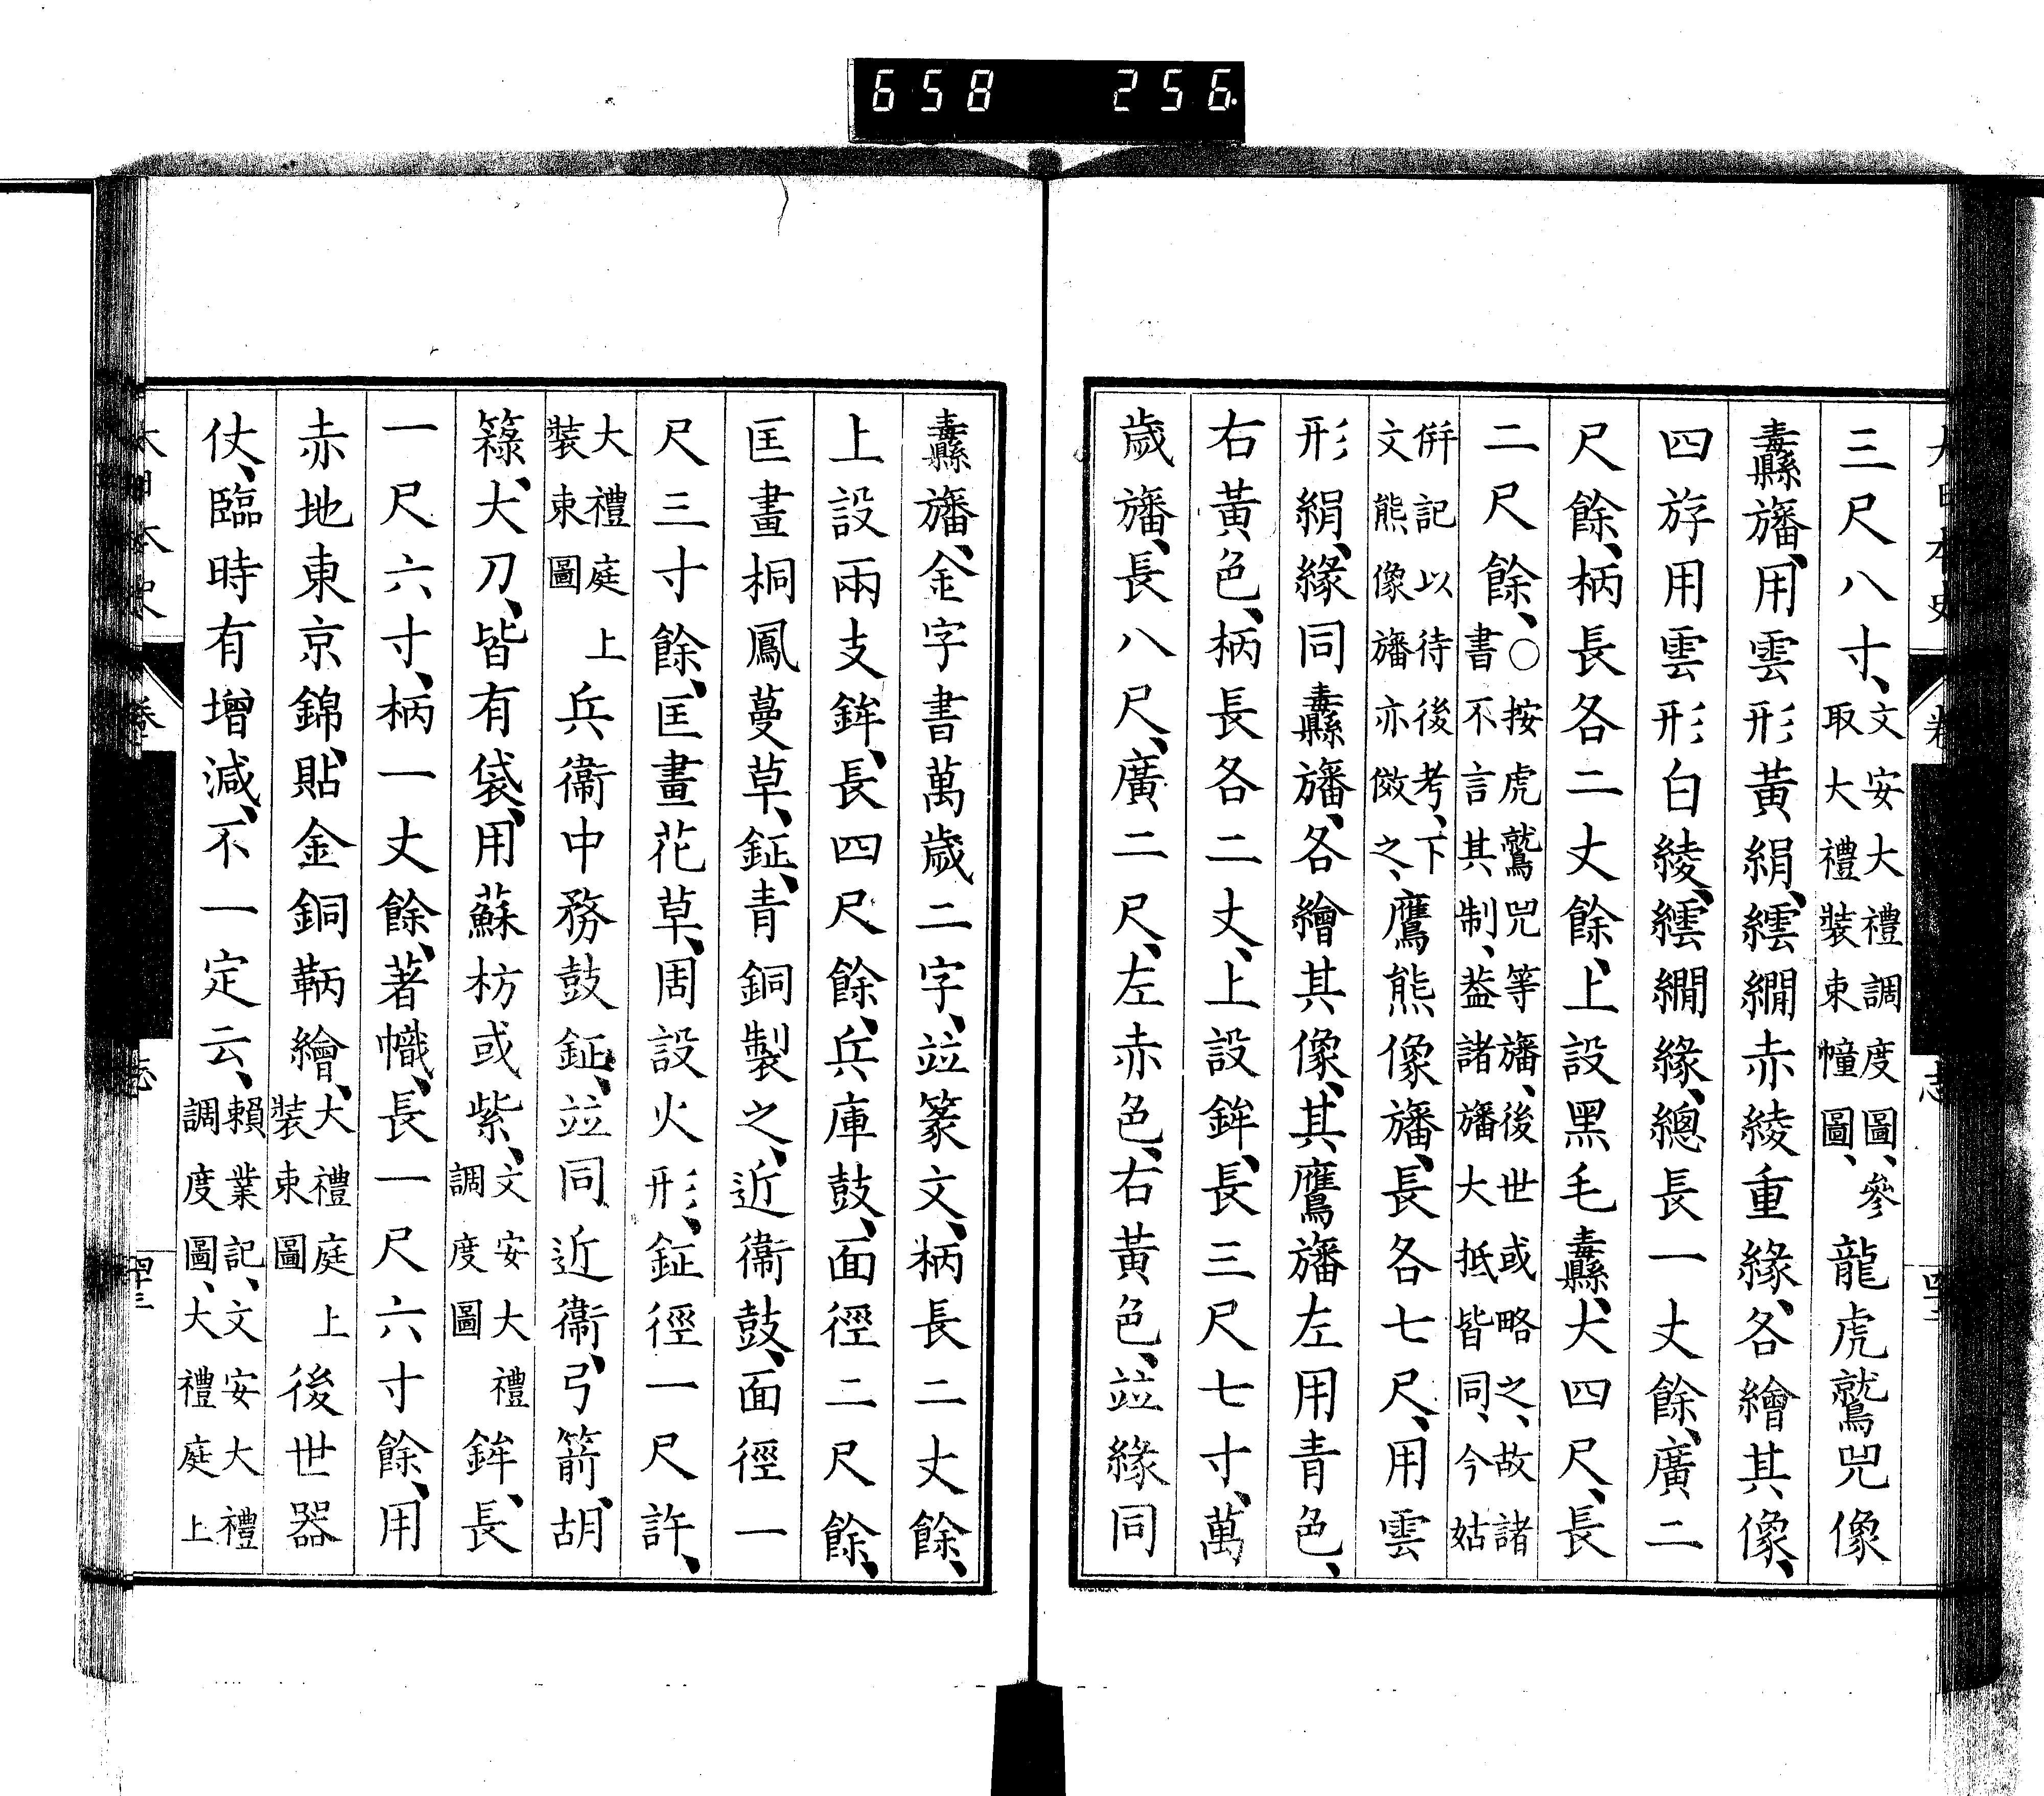 三尺八寸、文安大禮調度圖、參取大禮裝束幢圖、龍虎鷲兕像
纛旛、用雲形黃絹、繧繝赤綾重緣、各繪其像、
四斿用雲形白綾、繧繝緣、總長一丈餘、廣二
尺餘、柄長各二丈餘、上設黑毛纛、大四尺、長
二尺餘、○按虎鷲兕等旛、後世或略之、故諸書不言其制、葢諸旛大抵皆同、今姑
併記以待後考、下文熊像旛亦倣之、鷹熊像旛、長各七尺、用雲
形絹、緣同纛旛、各繪其像、其鷹旛左用青色、
右黃色、柄長各二丈、上設鉾、長三尺七寸、萬
歲旛、長八尺、廣二尺、左赤色、右黃色、竝緣同
纛旛、金字書萬歲二字、竝篆文、柄長二丈餘、
上設兩支鉾、長四尺餘、兵庫鼓、面徑二尺餘、
匡畫桐鳳蔓草、鉦、青銅製之、近衞鼓、面徑一
尺三寸餘、匡畫花草、周設火形、鉦徑一尺許、
大禮庭上裝束圖 兵衞中務鼓鉦、竝同近衞、弓箭、胡
簶、大刀、皆有袋、用蘇枋或紫、文安大禮調度圖 鉾、長
一尺六寸、柄一丈餘、著幟、長一尺六寸餘、用
赤地東京錦、貼金銅鞆繪、大禮庭上裝束圖 後世器
仗、臨時有增減、不一定云、賴業記、文安大禮調度圖、大禮庭上
大日本史 卷 志
658 256